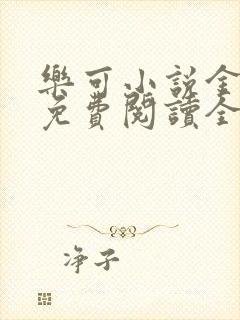 樂可小說全
免費閱讀全
净子